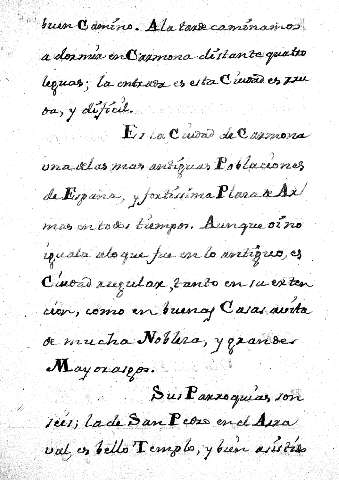 buen Camino. A la tarde caminamos
a dormir en Carmona distante quatro
leguas; la entrada es esta Ciudad es rue
da, y dificil.
Es la Ciudad de Carmona
una de las mas antiguas Poblaciones
de España, y fortissima Plaza de Ar/
mas en todos tiempos. Aunque oi no
iguala a lo que fue en lo antiguo, es
Ciudad regular, tanto en su exten
cion, como en buenas Casas avita
de mucha Nobleza, y grandes
Mayorasgos.
Sus Parroquias son
seis; la de San Pedro en el Arra
val, es bello Templo, y bien asisti